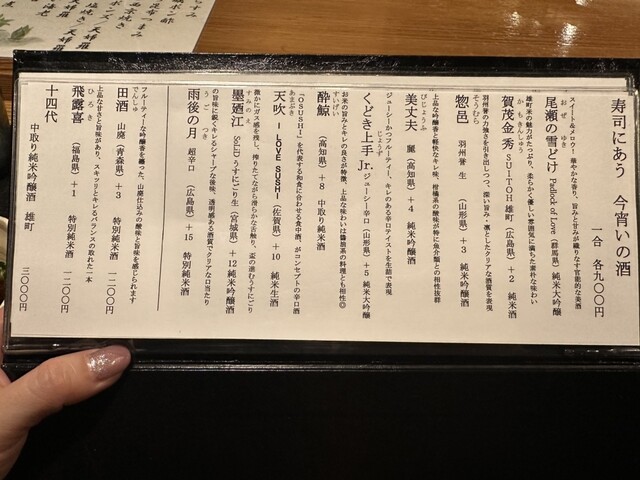 寿司にあう 今宵いの酒
一合 各九〇〇円
スイート&メロウ! 華やかな香り、旨みと甘みが織りなす官能的な美酒
おぜ ゆき
尾瀬の雪どけ Padlock of Love(群馬県) 純米大吟醸
雄町米の魅力がたっぷり、柔らかく優しい雰囲気に満ちた素朴な味わい
かもきんしゅう
賀茂金秀 SUITOH 雄町(広島県)+2 純米酒
羽州誉の力強さを引き出しつつ、深い旨み・凛としたクリアな酒質を表現
そうむら
惣邑 羽州誉 生 (山形県)+3 純米吟醸
上品な吟醸香と軽快なキレ味、柑橘系の酸味が特に魚介類との相性抜群
びじょうふ
美丈夫 麗(高知県)+4 純米吟醸酒
ジューシーかつフルーティー、キレのある辛口テイストを生詰で表現
じょうず
くどき上手 Jr. ジューシー辛口(山形県)+5 純米大吟醸
お米の旨みとキレの良さが特徴、上品な味わいは醤油系の料理とも相性◎
すいげい
酔鯨 (高知県)+8 中取り純米酒
「OSUSHI」を代表する和食に合わせる食中酒、がコンセプトの辛口酒
あまぶき
天吹 ーI LOVE SUSHIー(佐賀県)+10 純米生酒
微かにガス感を残し、搾りたてながら滑らかな舌触り、盃の進むうすにごり
すみのえ
墨廼江 Solidうすにごり生(宮城県)+12 純米吟醸
の旨味に鋭くキレるシャープな後味、透明感ある酒質でクリアな口当たり
うご つき
雨後の月 超辛口 (広島県)+15 特別純米酒
フルーティーな吟醸香を纏った、山廃仕込みの酸味と旨味を感じられます
でんしゅ
田酒 山廃(青森県)+3 特別純米酒 一二〇〇円
上品な甘さと旨味があり、スキッリとキレるバランスの取れた一本
ひろき
飛露喜 (福島県)+1 特別純米酒 一二〇〇円
十四代 中取り純米吟醸酒 雄町 三〇〇〇円